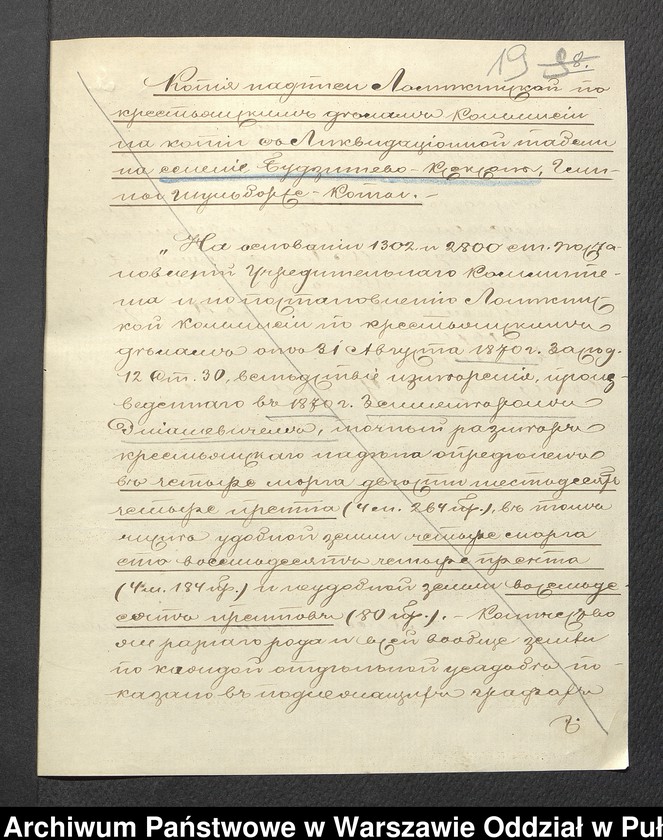 19 98.
Копія надписи Ломжинской по
крестьянскимъ дѣламъ Коммисіи
на копіи съ Ликвидаціонной табели
на селеніе Гмин-
ны Шульборже-Коты.-
„На основаніи 1302 и 2800 ст. поста-
новленій Учредительнаго Комите-
та и по постановленію Ломжинс-
кой Коммисіи по крестьянскимъ
дѣламъ отъ 31 Августа 1870 г.
12 ст. 30, вслѣдствіе измѣренія, произ-
веденнаго въ 1870 г. Землемѣромъ
точный размѣръ
крестьянскаго надѣла опредѣленъ
въ четыре морга двѣсти шестьдесятъ
четыре прента (4 м. 264 пр.), въ томъ
числѣ удобной земли четыре морга
сто восемьдесятъ четыре прента
(4 м. 184 пр.) и неудобной земли восемьде-
сятъ прентовъ (80 пр.).- Количество
же разнаго рода и всей вообще земли
по каждой отдѣльной усадьбѣ по-
казано въ подлежащихъ графахъ
Archiwum Państwowe w Warszawie Oddział w Puł